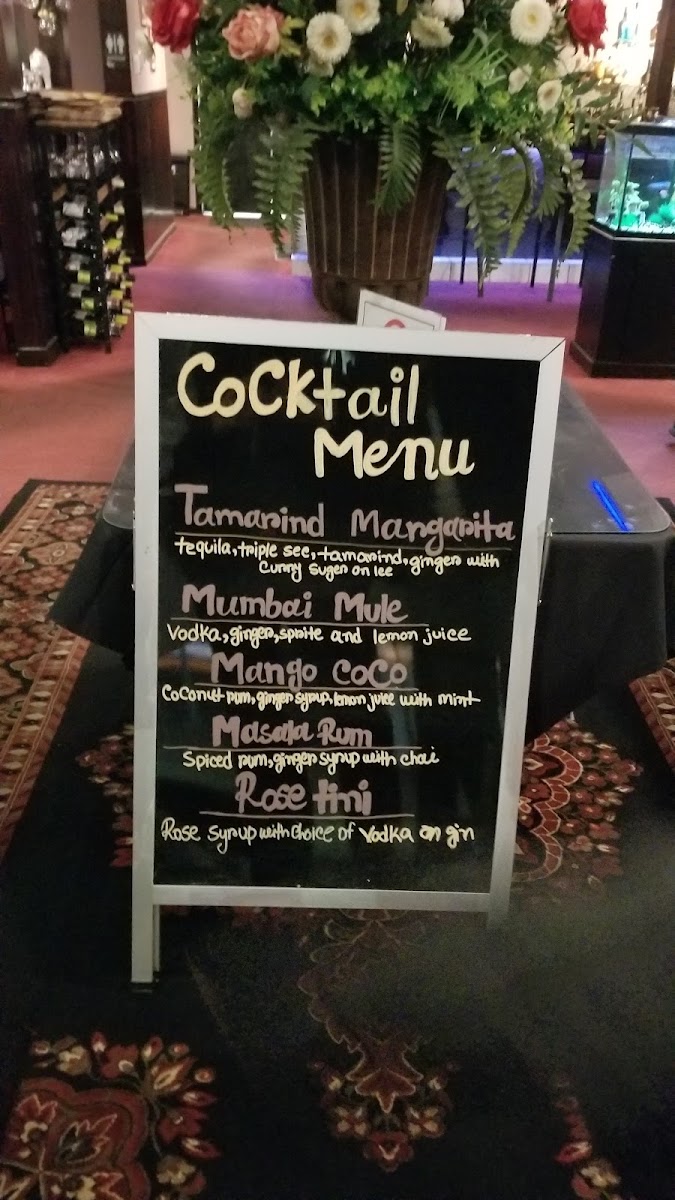 Cocktail
Menu
Tamarind Margarita
tequila, triple sec, tamarind, ginger with
curry suger on Ice
Mumbai Mule
Vodka, ginger, sprite and lemon juice
Mango CoCo
Coconut rum, ginger syrup, lemon juice with mint
Masala Rum
Spiced rum, ginger syrup with chai
Rose tini
Rose syrup with choice of Vodka or gin